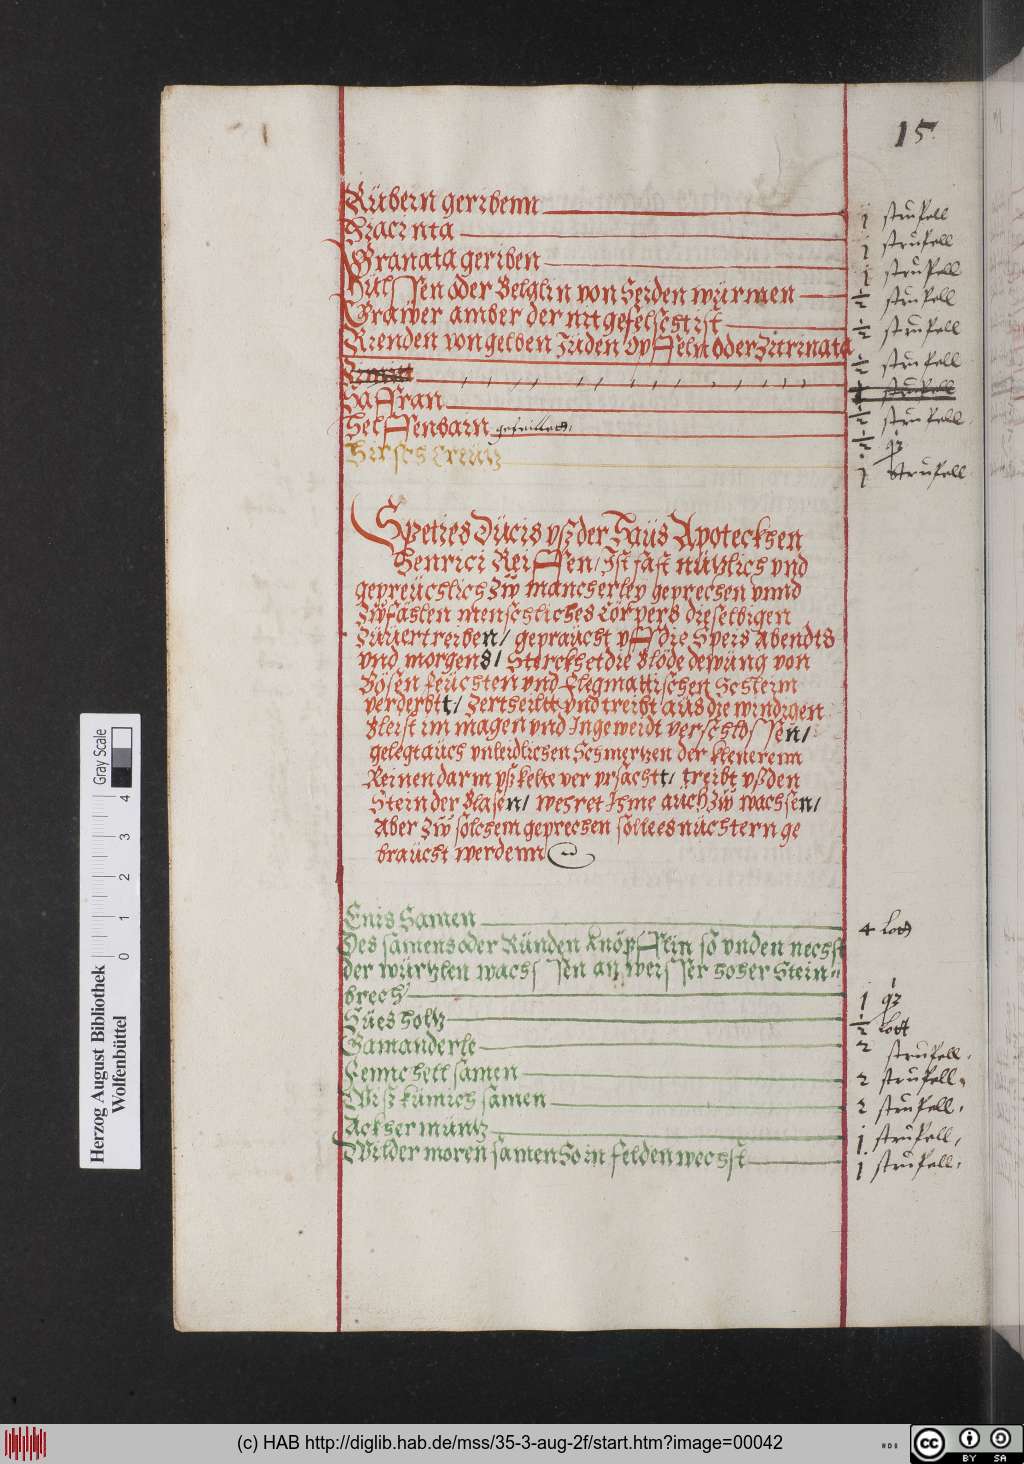 15
Rübein geribenn 1 strupell
Hiacinta 1 strupell
Granata geriben 1 strupell
Hülssen oder Belglin von Seiden würmen ½ strupell
Grawer amber der nit gefelscht ist ½ strupell
Rienden von gelben Juden öpffeln oder Zitrinata ½ strupell
Saffran ½ strupell
Helffenbain gefeilleth ½ qz
Hirsch Creütz 1 Strupell
Spetzes Ducis vß der Haüs Apoteckhen
Henrici Reiffen / Ist fast nützlich vnd
gepreüchlich Zw mancherley geprechen vnnd
Zwfahlen menschliches Cörpers dieselbigen
Zuuertreiben / gepraucht vff die Speis Abendts
vnd morgens / Sterckhet die Blöde dewüng von
Bösen feüchten vnd flegmattischen Schleim
verderbtt / Zertheiltt vnd treibt aus die windigen
Bleist im magen vnd Ingeweidt verschlossen /
gelegt auch vnleidlichen Schmertzen der kleneren
Reinendarm vß kelte ver vrsachtt / treibt vß den
Stein der Blasen / wehret Ihme auch Zw wachsen /
Aber Zw solchem geprechen soll ees nüchtern ge
braücht werdenn
Enis Samen 4 Loth
Des samens oder Runden knöpfflin so vnden nechst
der würtzlen wachssen an weisser hoher Stein
brech 1 qz
Süesholtz ½ Lott
Gamanderle 2 strupell.
Fennchell samen 2 strupell.
Wißkümich samen 2 strupell.
Ackhermüntz 1 strupell.
Wilder moren samen So in felden wechst 1 strupell.
Gray Scale
0 1 2 3 4
Herzog August Bibliothek
Wolfenbüttel
(c) HAB http://diglib.hab.de/mss/35-3-aug-2f/start.htm?image=00042
cc BY SA